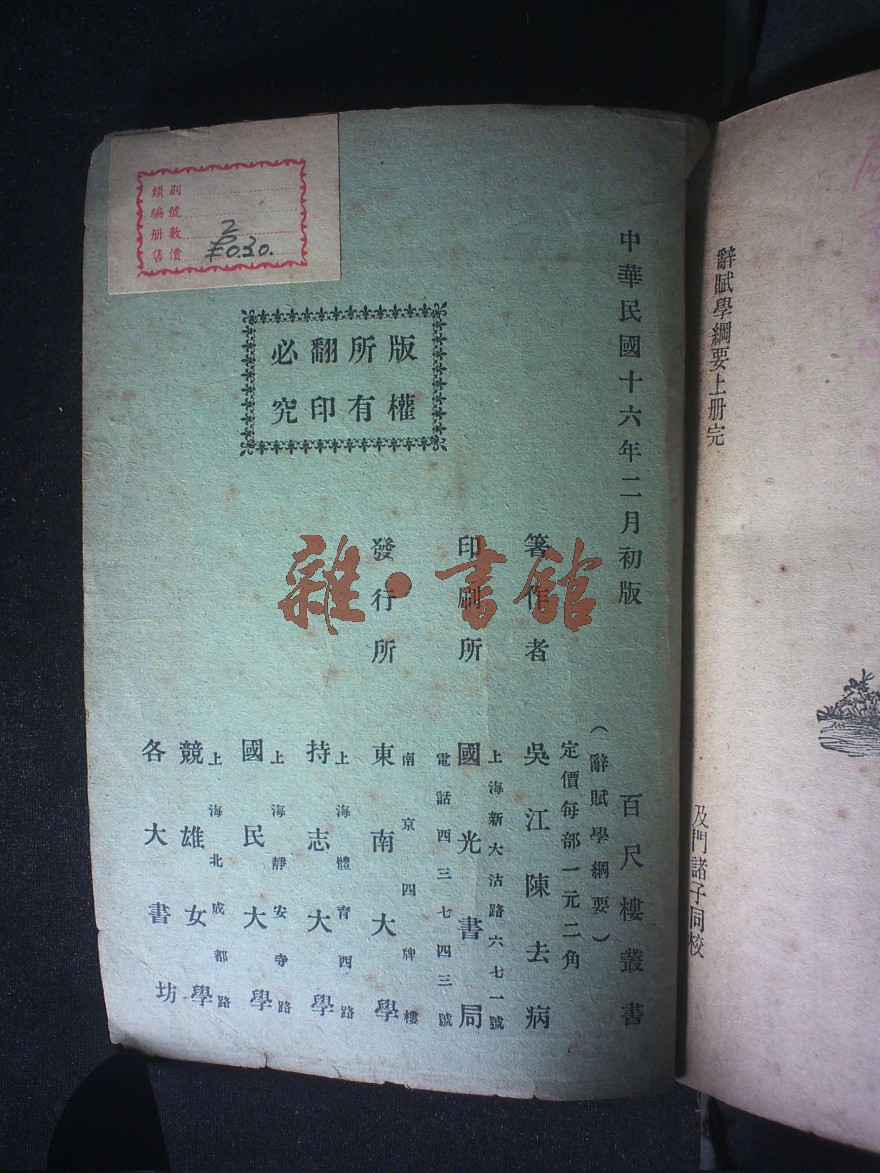 辭賦學綱要上册完
及門諸子同校
中華民國十六年二月初版
百尺樓叢書
(辭賦學綱要)
定價每部一元二角
箸作者
吳江陳去病
印刷所
上海新大沽路六七一號
國光書局
電話四三七四三號
發行所
南京四牌樓
東南大學
上海體育西路
持志大學
上海靜安寺路
國民大學
上海北成都路
競雄女學
各大書坊
版權
所有
翻印
必究
類別
編號
册數 2
售價 ¥0.30.
雜·書館